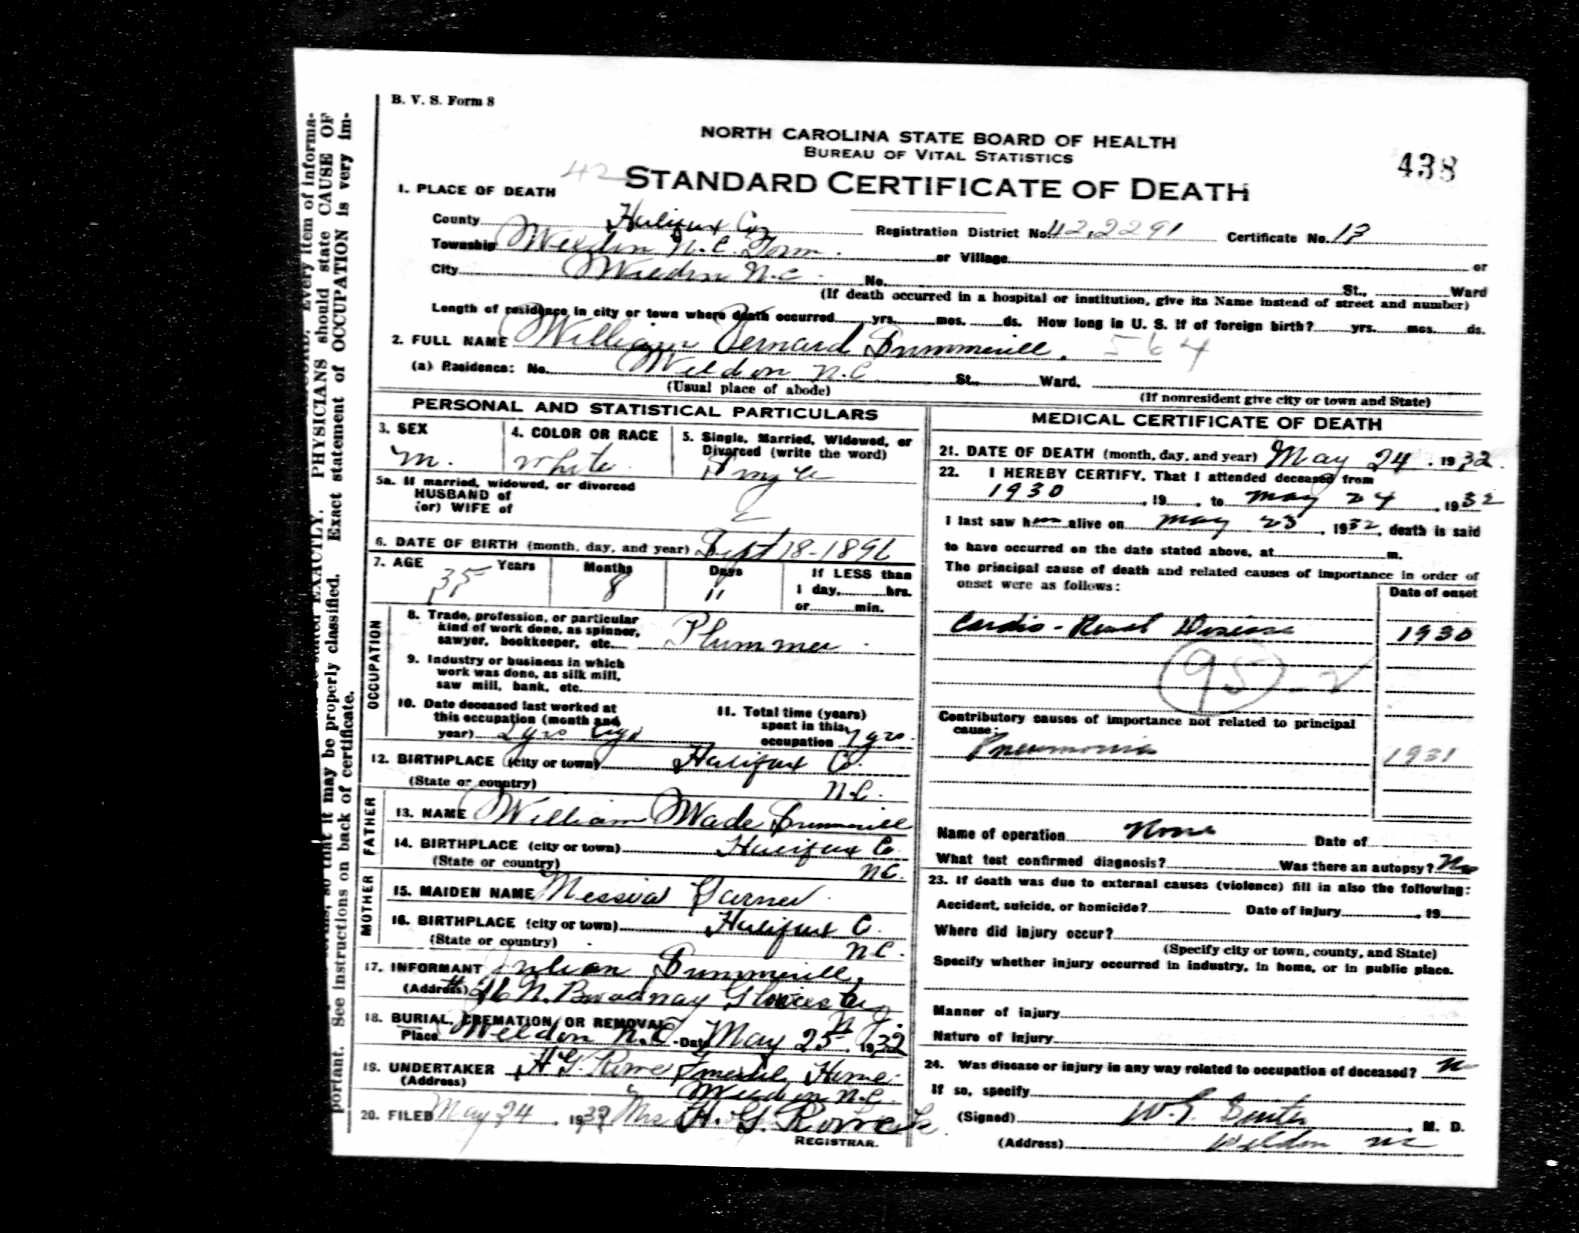 B. V. S. Form 8
NORTH CAROLINA STATE BOARD OF HEALTH
BUREAU OF VITAL STATISTICS
438
42
STANDARD CERTIFICATE OF DEATH
1. PLACE OF DEATH
County Halifax Co Registration District No. 42.2291 Certificate No. 13
Township Weldon N.C. Town. or Village or
City Weldon N.C. No. St., Ward
(If death occurred in a hospital or institution, give its Name instead of street and number)
Length of residence in city or town where death occurred yrs. mos. ds. How long in U. S. if of foreign birth? yrs. mos. ds.
2. FULL NAME William Vernard Drummill. 564
(a) Residence: No. Weldon N.C St., Ward,
(Usual place of abode) (If nonresident give city or town and State)
PERSONAL AND STATISTICAL PARTICULARS
3. SEX
m.
4. COLOR OR RACE
white
5. Single, Married, Widowed, or
Divorced (write the word)
Single
5a. If married, widowed, or divorced
HUSBAND of
(or) WIFE of
6. DATE OF BIRTH (month, day, and year) Sept 18-1896
7. AGE Years Months Days If LESS than
35 8 11 1 day, hrs.
or min.
OCCUPATION
8. Trade, profession, or particular
kind of work done, as spinner,
sawyer, bookkeeper, etc. Plummer
9. Industry or business in which
work was done, as silk mill,
saw mill, bank, etc.
10. Date deceased last worked at
this occupation (month and
year) 2yrs ago
11. Total time (years)
spent in this
occupation 7 yrs.
12. BIRTHPLACE (city or town) Halifax Co.
(State or country) N.C.
FATHER
13. NAME William Wade
14. BIRTHPLACE (city or town) Halifax Co
(State or country) N.C.
MOTHER
15. MAIDEN NAME Garner
16. BIRTHPLACE (city or town) Halifax C.
(State or country) N.C.
17. INFORMANT Julian
(Address) N. Broadway Gloucester
N.J.
18. BURIAL, CREMATION, OR REMOVAL
Place Weldon N.C. Date May 25 1932
19. UNDERTAKER H G. Rowe Funeral Home
(Address) Weldon N.C.
20. FILED May 24, 1932 Mrs H. G. Rowe
REGISTRAR.
MEDICAL CERTIFICATE OF DEATH
21. DATE OF DEATH (month, day, and year) May 24, 1932.
22. I HEREBY CERTIFY, That I attended deceased from
1930, 19 , to May 24, 1932
I last saw him alive on May 23, 1932, death is said
to have occurred on the date stated above, at m.
The principal cause of death and related causes of importance in order of
onset were as follows: Date of onset
Cardio-Renal Disease 1930
95
Contributory causes of importance not related to principal
cause:
Pneumonia 1931
Name of operation None Date of
What test confirmed diagnosis? Was there an autopsy? No
23. If death was due to external causes (violence) fill in also the following:
Accident, suicide, or homicide? Date of injury , 19
Where did injury occur?
(Specify city or town, county, and State)
Specify whether injury occurred in industry, in home, or in public place.
Manner of injury
Nature of injury
24. Was disease or injury in any way related to occupation of deceased? no
If so, specify
(Signed) , M. D.
(Address) Weldon NC
EXACTLY. PHYSICIANS should state CAUSE OF
be properly classified. Exact statement of OCCUPATION is very im-
portant. See instructions on back of certificate.